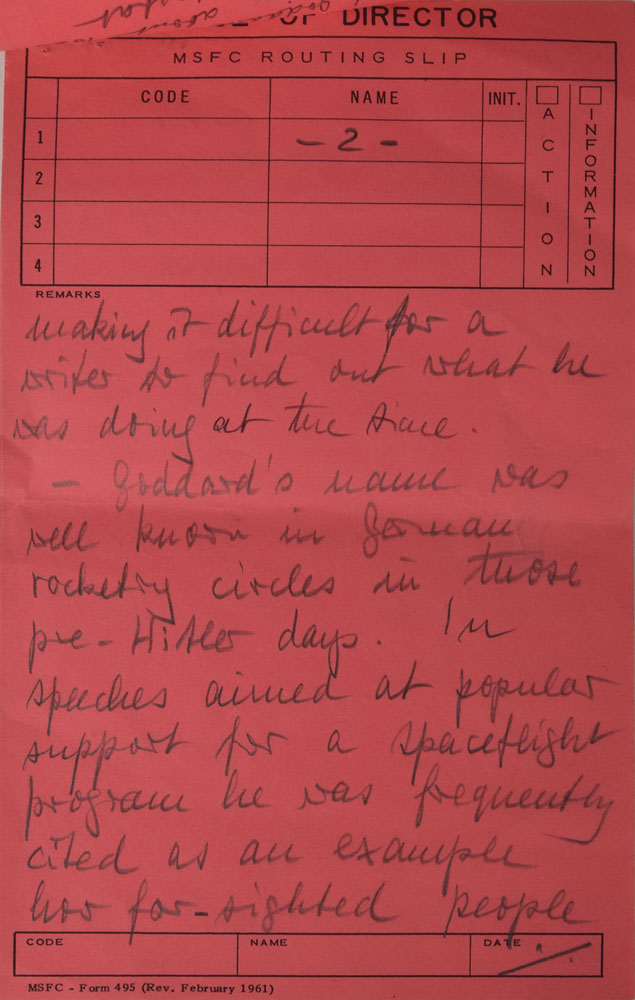 OF DIRECTOR
MSFC ROUTING SLIP
CODE NAME INIT. ACTION INFORMATION
1 - 2 -
2
3
4
REMARKS
making it difficult for a
writer to find out what he
was doing at the time.
- Goddard's name was
well known in German
rocketry circles in those
pre-Hitler days. In
speeches aimed at popular
support for a spaceflight
program he was frequently
cited as an example
how far-sighted people
CODE NAME DATE
MSFC - Form 495 (Rev. February 1961)